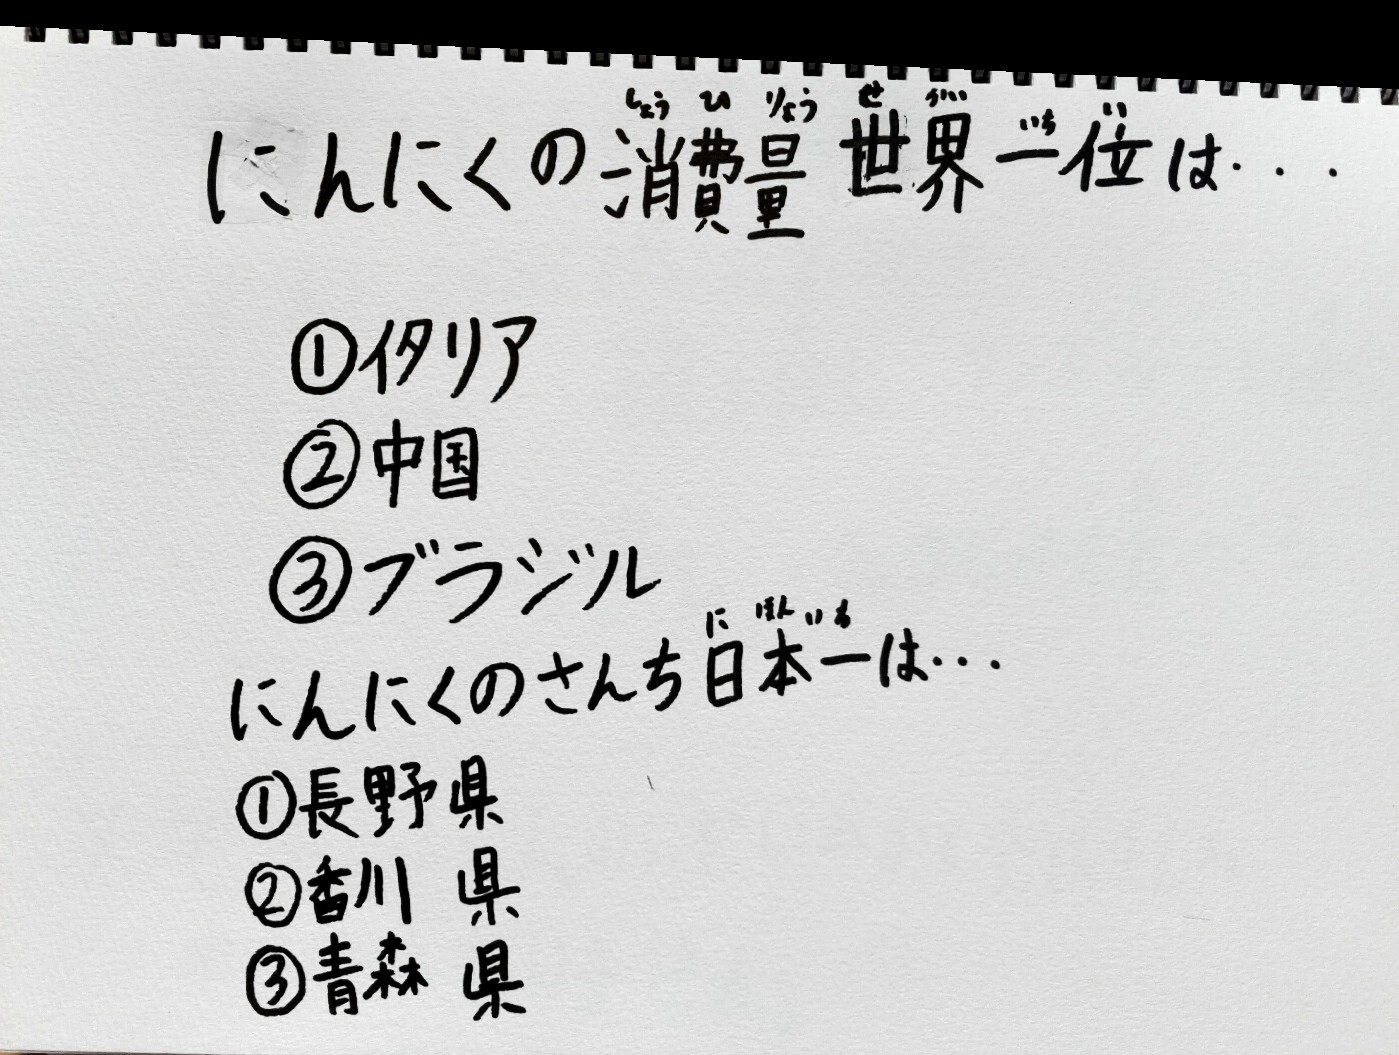 にんにくの消費量 世界一位は・・・
しょう ひ りょう せ かい いち い
①イタリア
②中国
③ブラジル
にんにくのさんち日本一は・・・
に ほん いち
①長野県
②香川 県
③青森 県